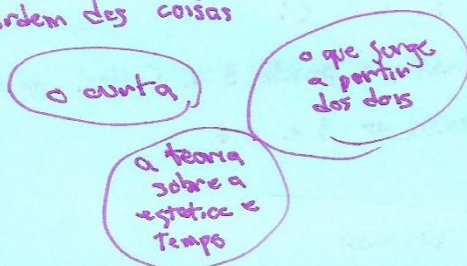 ordem das coisas
o curta
o que surge
a partir
dos dois
a teoria
sobre a
estética e
Tempo